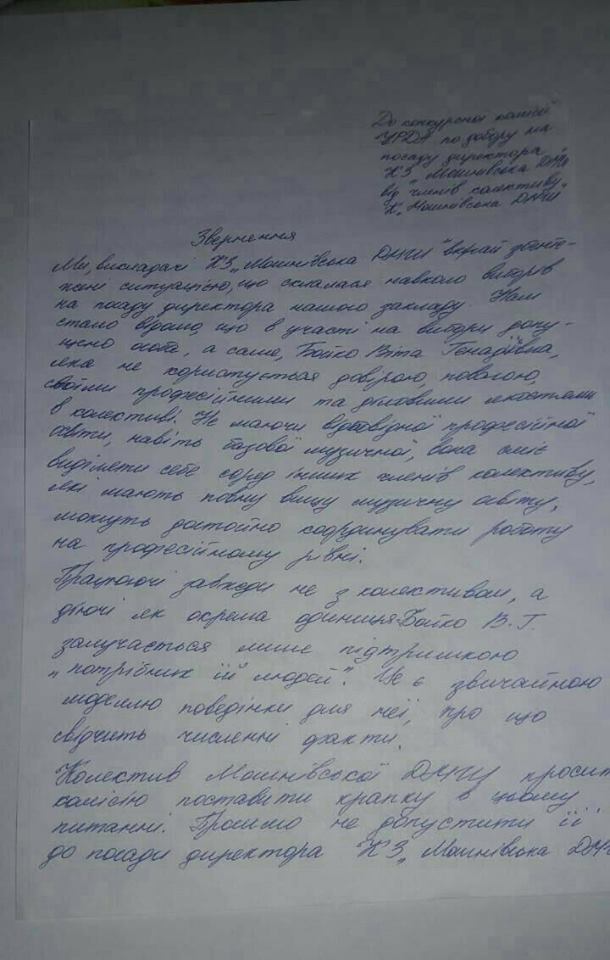 До конкурсної комісії
ЧРДА по добору на
посаду директора
КЗ „Мошнівська ДМШ"
від членів колективу
КЗ „Мошнівська ДМШ"
Звернення
Ми, викладачі КЗ „Мошнівська ДМШ" вкрай збенте-
жені ситуацією, що склалася навколо виборів
на посаду директора нашого закладу. Нам
стало відомо, що в участі на вибори допу-
щено особа, а саме, Бойко Віта Генадіївна,
яка не користується довірою, повагою,
своїми професійними та діловими якостями
в колективі. Не маючи відповідної професійної
освіти, навіть базової музичної, вона сміє
виділяти себе серед інших членів колективу,
які мають повну вищу музичну освіту,
можуть достойно координувати роботу
на професійному рівні.
Працюючі завжди не з колективом, а
діючі як окрема одиниця Бойко В. Г.
залучається лише підтримкою
„потрібних їй людей". Це є звичайною
моделлю поведінки для неї, про що
свідчить численні факти.
Колектив Мошнівської ДМШ просить
комісію поставити крапку в цьому
питанні. Просимо не допустити її
до посади директора КЗ „Мошнівська ДМШ